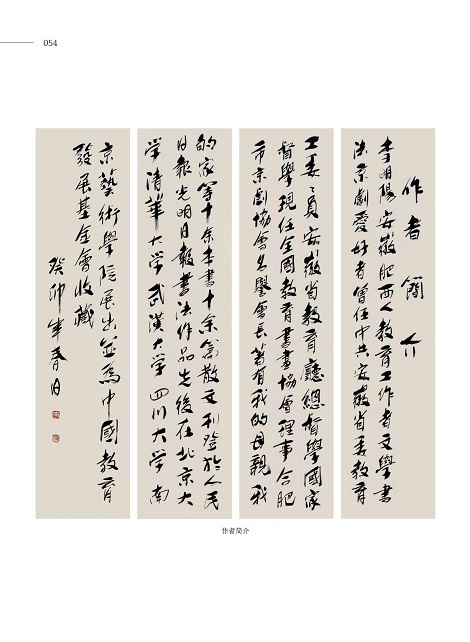 054
作者簡介
李明陽安徽肥西人教育工作者文學書
法京劇愛好者曾任中共安徽省委教育
工委委員安徽省教育廳總督學國家
督學現任全國教育書畫協會理事合肥
市京劇協會名譽會長著有我的母親我
的家等十余本書十余篇散文刊登於人民
日報光明日報書法作品先後在北京大
学清華大学武漢大学四川大学南
京藝術學院展出並為中國教育
發展基金會收藏
癸卯年春日
作者简介